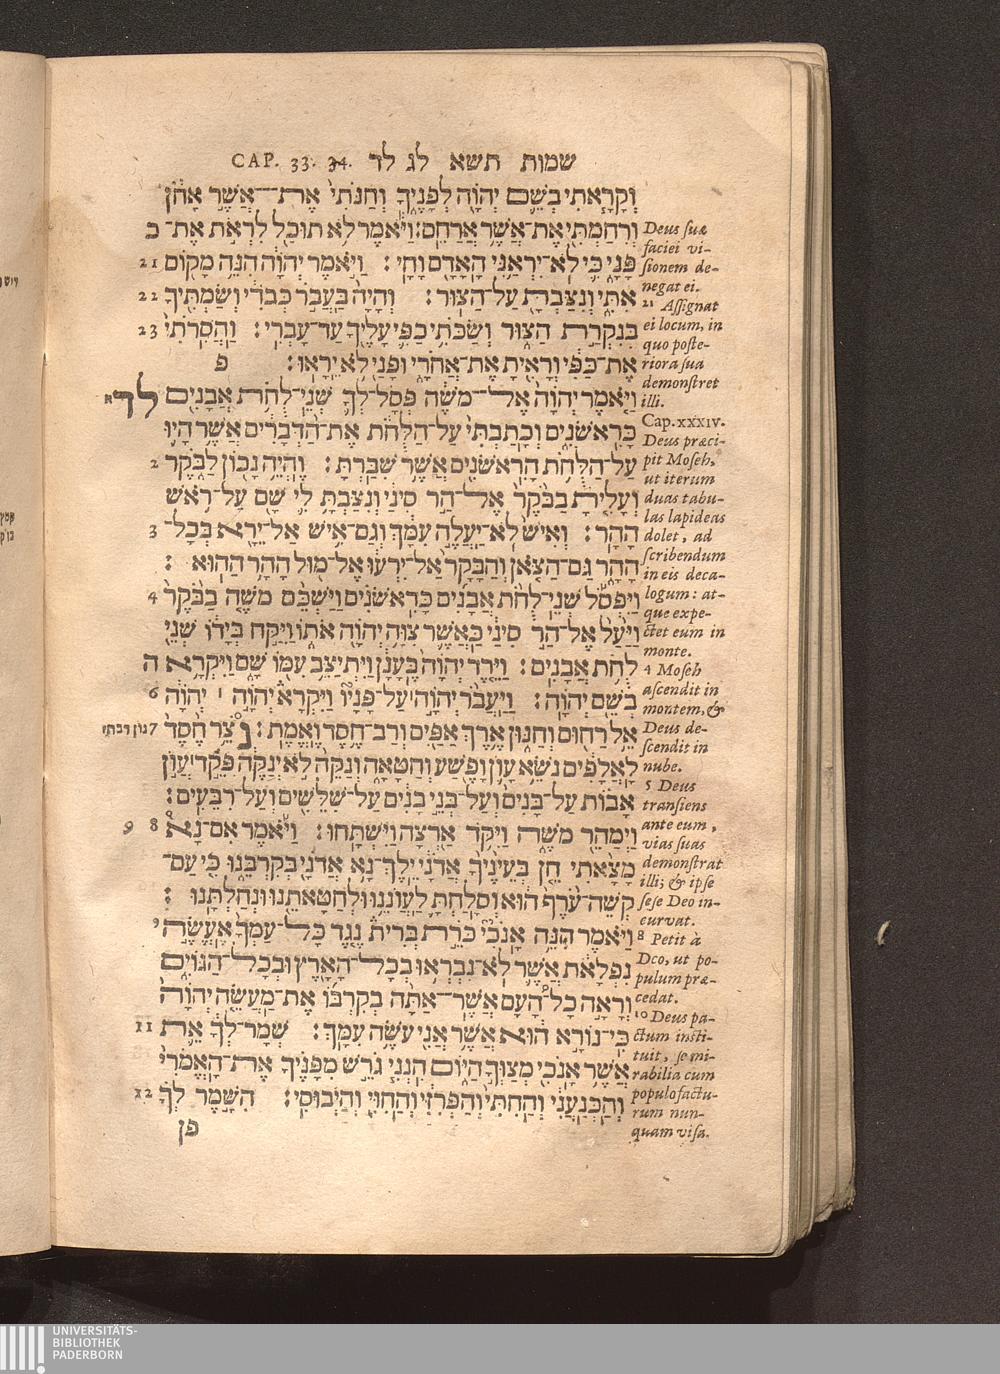 CAP. 33. 34. שמות תשא לג לד
וְקָרָאתִי בְשֵׁם יְהוָה לְפָנֶיךָ וְחַנֹּתִי אֶת־אֲשֶׁר אָחֹן
וְרִחַמְתִּי אֶת־אֲשֶׁר אֲרַחֵם׃ וַיֹּאמֶר לֹא תוּכַל לִרְאֹת אֶת־ כ
פָּנָי כִּי לֹא־יִרְאַנִי הָאָדָם וָחָי׃ וַיֹּאמֶר יְהוָה הִנֵּה מָקוֹם 21
אִתִּי וְנִצַּבְתָּ עַל־הַצּוּר׃ וְהָיָה בַּעֲבֹר כְּבֹדִי וְשַׂמְתִּיךָ 22
בְּנִקְרַת הַצּוּר וְשַׂכֹּתִי כַפִּי עָלֶיךָ עַד־עָבְרִי׃ וַהֲסִרֹתִי 23
אֶת־כַּפִּי וְרָאִיתָ אֶת־אֲחֹרָי וּפָנַי לֹא יֵרָאוּ׃ פ
וַיֹּאמֶר יְהוָה אֶל־מֹשֶׁה פְּסָל־לְךָ שְׁנֵי־לֻחֹת אֲבָנִים לד א
כָּרִאשֹׁנִים וְכָתַבְתִּי עַל־הַלֻּחֹת אֶת־הַדְּבָרִים אֲשֶׁר הָיוּ
עַל־הַלֻּחֹת הָרִאשֹׁנִים אֲשֶׁר שִׁבַּרְתָּ׃ וֶהְיֵה נָכוֹן לַבֹּקֶר 2
וְעָלִיתָ בַבֹּקֶר אֶל־הַר סִינַי וְנִצַּבְתָּ לִי שָׁם עַל־רֹאשׁ
הָהָר׃ וְאִישׁ לֹא־יַעֲלֶה עִמָּךְ וְגַם־אִישׁ אַל־יֵרָא בְּכָל־ 3
הָהָר גַּם־הַצֹּאן וְהַבָּקָר אַל־יִרְעוּ אֶל־מוּל הָהָר הַהוּא׃
וַיִּפְסֹל שְׁנֵי־לֻחֹת אֲבָנִים כָּרִאשֹׁנִים וַיַּשְׁכֵּם מֹשֶׁה בַבֹּקֶר 4
וַיַּעַל אֶל־הַר סִינַי כַּאֲשֶׁר צִוָּה יְהוָה אֹתוֹ וַיִּקַּח בְּיָדוֹ שְׁנֵי
לֻחֹת אֲבָנִים׃ וַיֵּרֶד יְהוָה בֶּעָנָן וַיִּתְיַצֵּב עִמּוֹ שָׁם וַיִּקְרָא ה
בְשֵׁם יְהוָה׃ וַיַּעֲבֹר יְהוָה עַל־פָּנָיו וַיִּקְרָא יְהוָה ׀ יְהוָה 6
אֵל רַחוּם וְחַנּוּן אֶרֶךְ אַפַּיִם וְרַב־חֶסֶד וֶאֱמֶת׃ נֹצֵר חֶסֶד 7 נון רבתי
לָאֲלָפִים נֹשֵׂא עָוֹן וָפֶשַׁע וְחַטָּאָה וְנַקֵּה לֹא יְנַקֶּה פֹּקֵד עֲוֹן
אָבוֹת עַל־בָּנִים וְעַל־בְּנֵי בָנִים עַל־שִׁלֵּשִׁים וְעַל־רִבֵּעִים׃
וַיְמַהֵר מֹשֶׁה וַיִּקֹּד אַרְצָה וַיִּשְׁתָּחוּ׃ וַיֹּאמֶר אִם־נָא 8 9
מָצָאתִי חֵן בְּעֵינֶיךָ אֲדֹנָי יֵלֶךְ־נָא אֲדֹנָי בְּקִרְבֵּנוּ כִּי עַם־
קְשֵׁה־עֹרֶף הוּא וְסָלַחְתָּ לַעֲוֹנֵנוּ וּלְחַטָּאתֵנוּ וּנְחַלְתָּנוּ׃
וַיֹּאמֶר הִנֵּה אָנֹכִי כֹּרֵת בְּרִית נֶגֶד כָּל־עַמְּךָ אֶעֱשֶׂה י
נִפְלָאֹת אֲשֶׁר לֹא־נִבְרְאוּ בְכָל־הָאָרֶץ וּבְכָל־הַגּוֹיִם
וְרָאָה כָל־הָעָם אֲשֶׁר־אַתָּה בְקִרְבּוֹ אֶת־מַעֲשֵׂה יְהוָה
כִּי־נוֹרָא הוּא אֲשֶׁר אֲנִי עֹשֶׂה עִמָּךְ׃ שְׁמָר־לְךָ אֵת 11
אֲשֶׁר אָנֹכִי מְצַוְּךָ הַיּוֹם הִנְנִי גֹרֵשׁ מִפָּנֶיךָ אֶת־הָאֱמֹרִי
וְהַכְּנַעֲנִי וְהַחִתִּי וְהַפְּרִזִּי וְהַחִוִּי וְהַיְבוּסִי׃ הִשָּׁמֶר לְךָ 12
פן
Deus suæ
faciei vi-
sionem de-
negat ei.
21 Assignat
ei locum, in
quo poste-
riora sua
demonstret
illi.
Cap. xxxiv.
Deus præci-
pit Moseh,
ut iterum
duas tabu-
las lapideas
dolet, ad
scribendum
in eis deca-
logum: at-
que expe-
ctet eum in
monte.
4 Moseh
ascendit in
montem, &
Deus de-
scendit in
nube.
5 Deus
transiens
ante eum,
vias suas
demonstrat
illi; & ipse
sese Deo in-
curvat.
8 Petit à
Deo, ut po-
pulum præ-
cedat.
10 Deus pa-
ctum insti-
tuit, se mi-
rabilia cum
populo factu-
rum nun-
quam visa.
UNIVERSITÄTS-
BIBLIOTHEK
PADERBORN